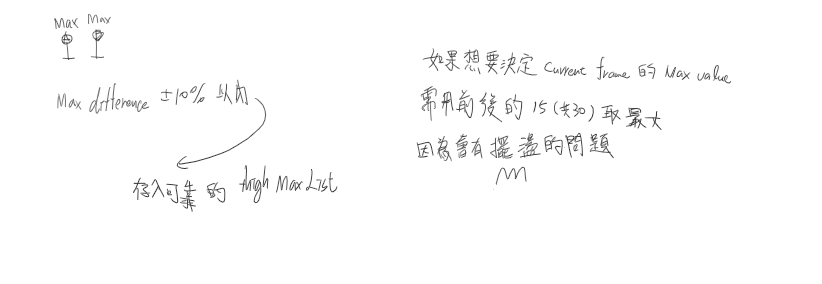 Max Max
Max difference ±10% 以內
存入可靠的 thigh Max List
如果想要決定 current frame 的 Max value
需用前後的 15 (共30) 取最大
因為會有擺盪的問題